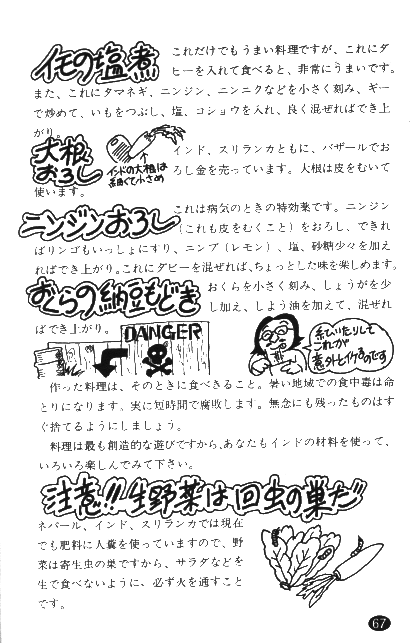 イモの塩煮
これだけでもうまい料理ですが、これにダ
ヒーを入れて食べると、非常にうまいです。
また、これにタマネギ、ニンジン、ニンニクなどを小さく刻み、ギー
で炒めて、いもをつぶし、塩、コショウを入れ、良く混ぜればでき上
がり。
大根おろし
インドの大根は
細くて小さめ
インド、スリランカともに、バザールでお
ろし金を売っています。大根は皮をむいて
使います。
ニンジンおろし
これは病気のときの特効薬です。ニンジン
(これも皮をむくこと)をおろし、できれ
ばリンゴもいっしょにすり、ニンブ(レモン)、塩、砂糖少々を加え
ればでき上がり。これにダヒーを混ぜれば、ちょっとした味を楽しめます。
おくらの納豆もどき
おくらを小さく刻み、しょうがを少
し加え、しょう油を加えて、混ぜれ
ばでき上がり。
DANGER
糸ひいたりして
これが
意外とイケるのです
作った料理は、そのときに食べきること。暑い地域での食中毒は命
とりになります。実に短時間で腐敗します。無念にも残ったものはす
ぐ捨てるようにしましょう。
料理は最も創造的な遊びですから、あなたもインドの材料を使って、
いろいろ楽しんでみて下さい。
注意!!生野菜は回虫の巣だ
ネパール、インド、スリランカでは現在
でも肥料に人糞を使っていますので、野
菜は寄生虫の巣ですから、サラダなどを
生で食べないように、必ず火を通すこと
です。
67